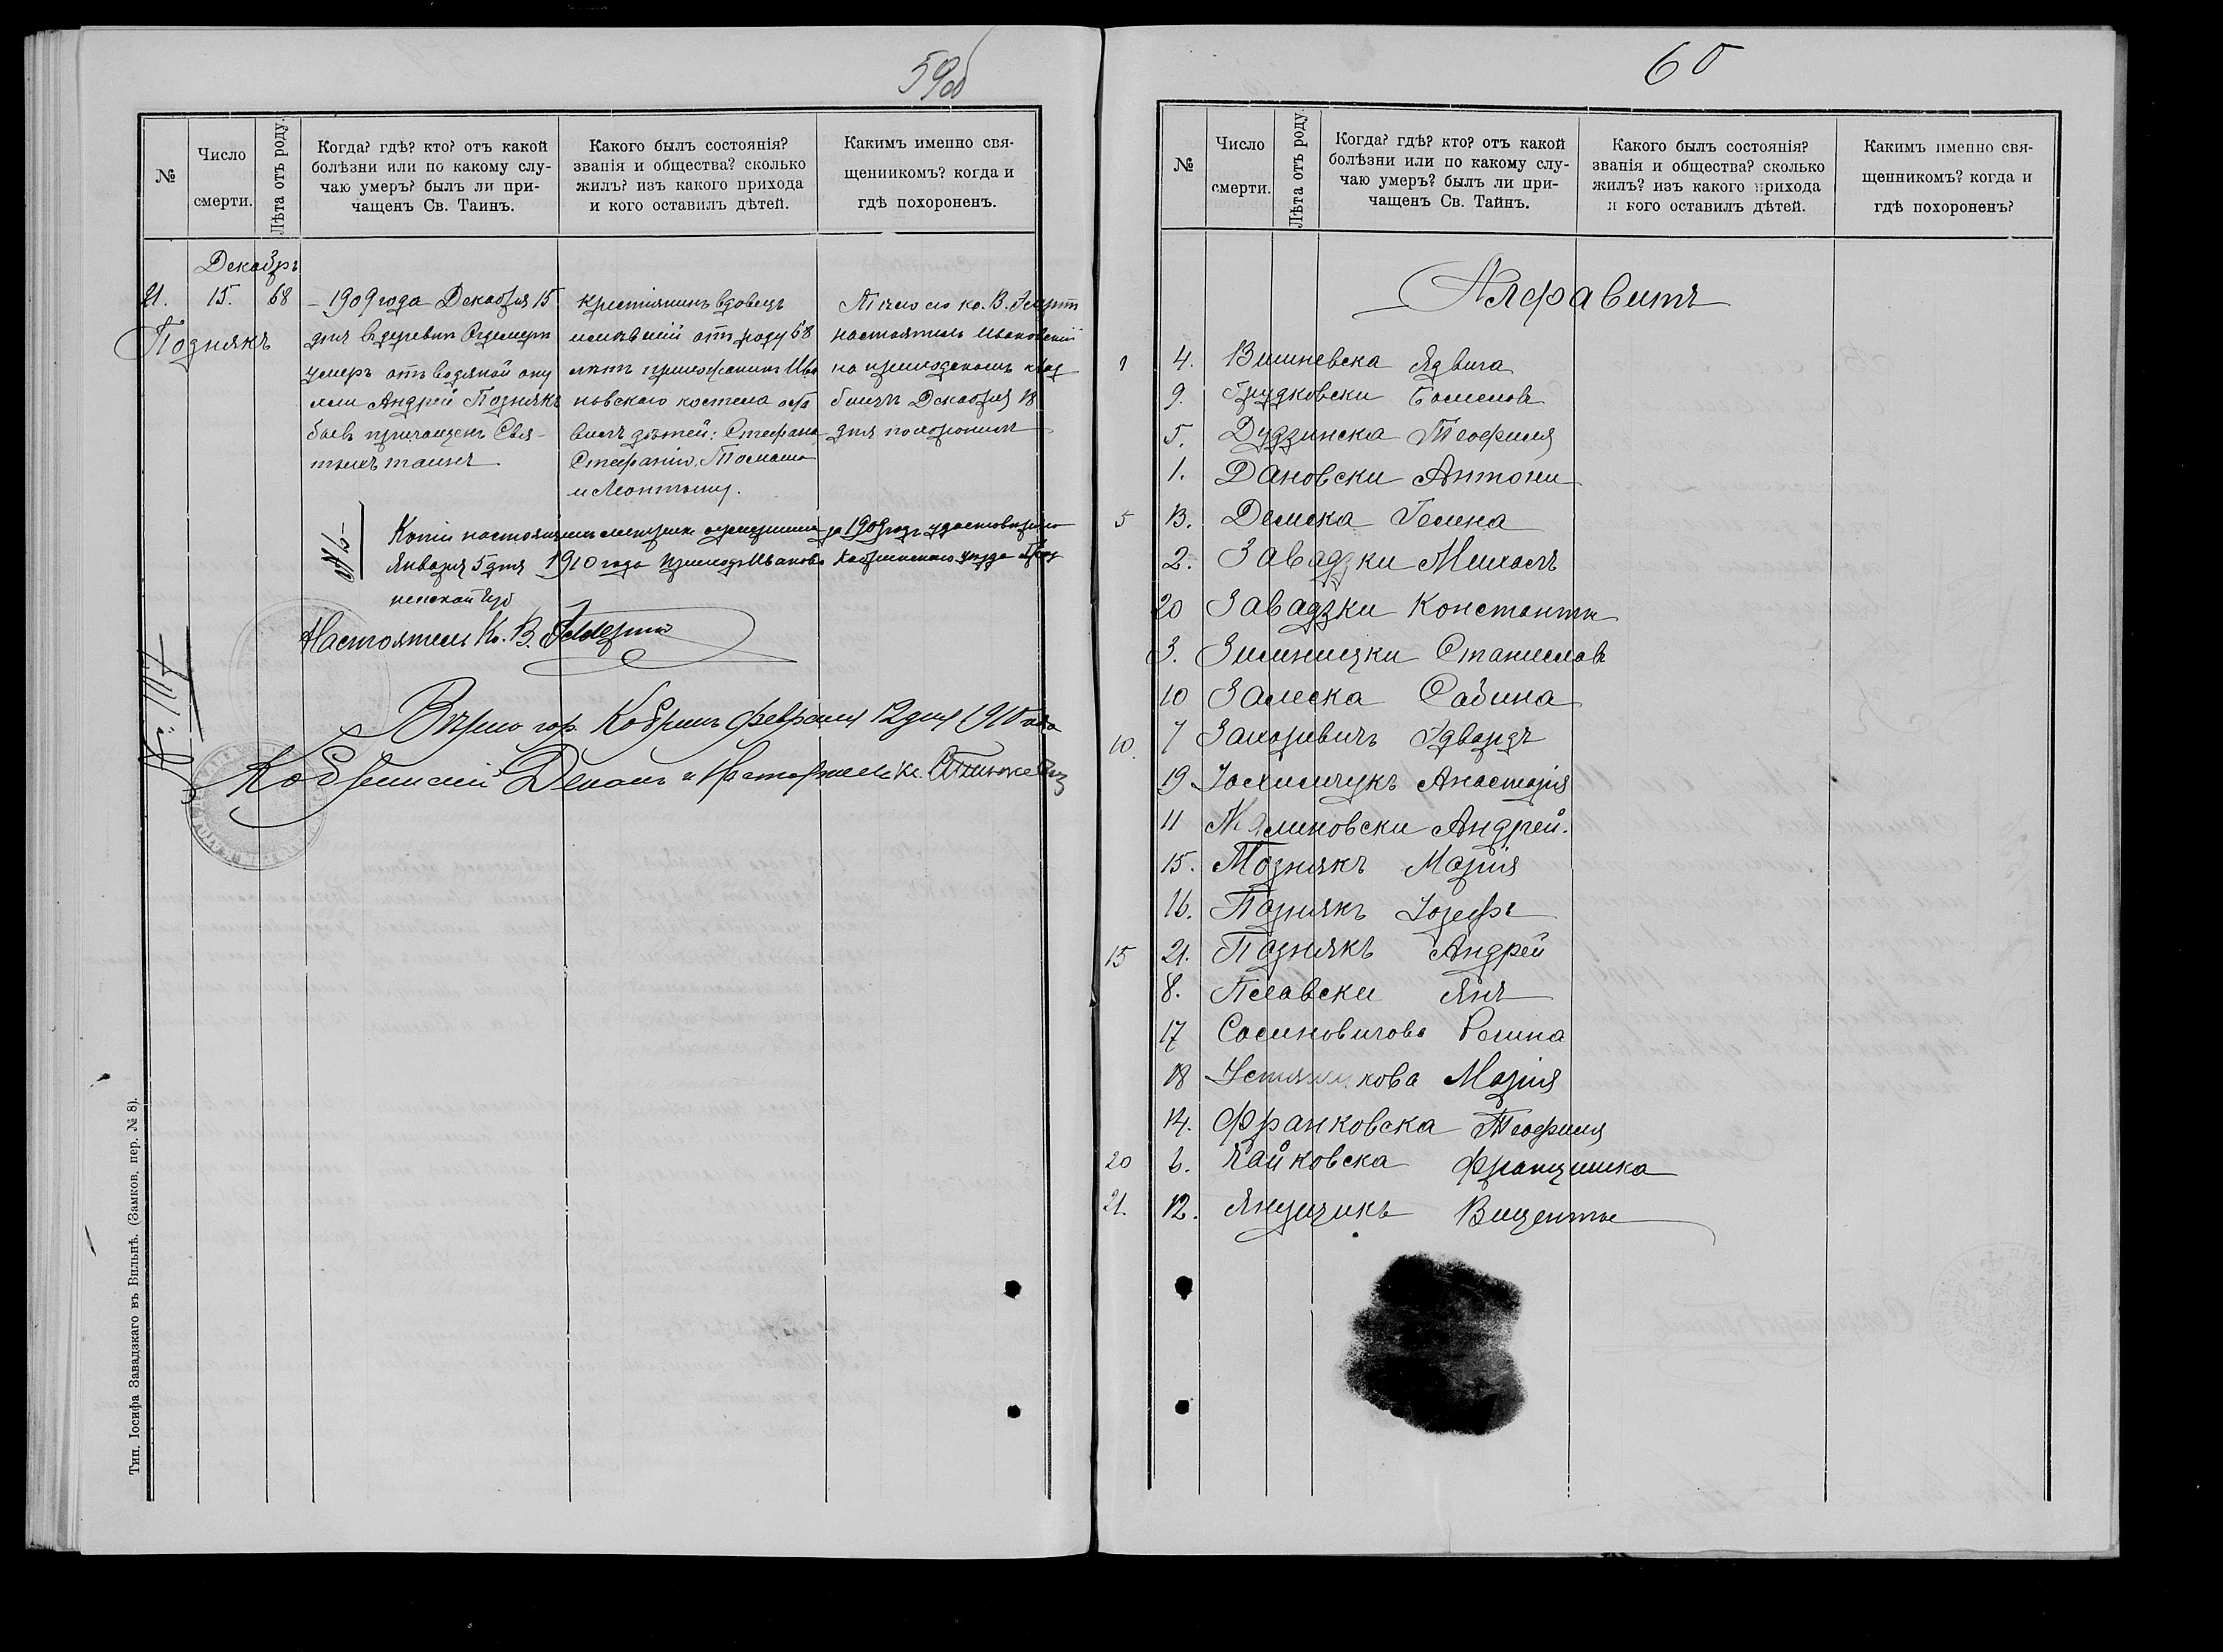 59об
№
Число смерти.
Лѣта отъ роду.
Когда? гдѣ? кто? отъ какой
болѣзни или по какому слу-
чаю умеръ? былъ ли при-
чащенъ Св. Таинъ.
Какого былъ состоянія?
званія и общества? сколько
жилъ? изъ какого прихода
и кого оставилъ дѣтей.
Какимъ именно свя-
щенникомъ? когда и
гдѣ похороненъ.
Декабрь
21. 15. 68
Познякъ
1909 года Декабря 15
дня в деревни
умеръ отъ водяной опу
холи Андрей Познякъ
бывъ причащенъ Свя-
тыхъ таинъ
крестіянинъ вдовецъ
имѣвшій отъ роду 68
лѣтъ прихожанинъ Ива
новскаго костела оста
вилъ дѣтей: Стефана
Стефанію, Томаша
и Монтыну.
Тѣло его кс. В.
настоятель Ивановскій
на приходскомъ клад
бищѣ Декабря 18
дня похоронилъ
Копія настоящихъ метрикъ за 1909 годъ
Января 5 дня 1910 года приход Иваново Кобринскаго уѣзда Грод
ненской Губ
Настоятель Кс. В.
Вѣрно гор. Кобринъ февраля 12 дня 1910 года
Кобринскій Деканъ и Настоятель Кс.
Тип. Іосифа Завадзкаго въ Вильнѣ. (Замков. пер. № 8).
60
№
Число смерти.
Лѣта отъ роду.
Когда? гдѣ? кто? отъ какой
болѣзни или по какому слу-
чаю умеръ? былъ ли при-
чащенъ Св. Тайнъ.
Какого былъ состоянія?
званія и общества? сколько
жилъ? изъ какого прихода
и кого оставилъ дѣтей.
Какимъ именно свя-
щенникомъ? когда и
гдѣ похороненъ?
Алфавитъ
1 4. Вишневска Ядвига
9. Грудковски Болеслов
5. Дудзинска Теофиля
1. Дановски Антони
5 13. Демска Гелена
2. Завадзки Михалъ
20 Завадзки Константы
3. Зиминицки Станислав
10 Залеска Сабина
10. 7 Захаревичъ Эдвардъ
19 Іохимчукъ Анастазія
11 Калиновски Андрей.
15. Познякъ Марія
16. Познякъ Іозефъ
15 21. Познякъ Андрей
8. Пславски Янъ
17 Сосиновичова Регина
18 кова Марія
14. Франковска Теофиля
20 6. Хайковска Францишка
21. 12. Янушчикъ Виценты